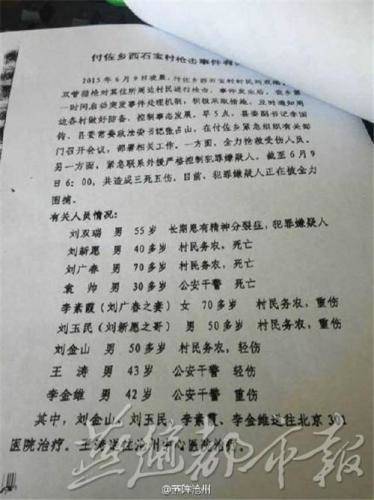 付佐乡西石宝村枪击事件有
2015年6月9日凌晨,付佐乡西石宝村村民刘双瑞
双管猎枪对其住所周边村民进行枪击,事件发生后,我乡第
一时间启动突发事件处理机制,积极采取措施,及时通知周
边各村做好防备,控制事态发展,早5点,县委副书记李国
钧、县委常委政法委书记张占山,在付佐乡紧急组织有关部
门召开会议,部署相关工作。一方面,全力抢救受伤人员。
另一方面,紧急联系外援严格控制犯罪嫌疑人。截至6月9
日6:00,共造成三死五伤。目前,犯罪嫌疑人正在被全力
围捕。
有关人员情况:
刘双瑞 男 55岁 长期患有精神分裂症,犯罪嫌疑人
刘新愿 男 40多岁 村民务农,死亡
刘广春 男 70多岁 村民务农,死亡
袁帅 男 30多岁 公安干警 死亡
李素霞(刘广春之妻)女 70多岁 村民务农,重伤
刘玉民(刘新愿之哥)男 50多岁 村民务农,重伤
刘金山 男 50多岁 村民务农,轻伤
王涛 男 43岁 公安干警 轻伤
李金雄 男 42岁 公安干警 重伤
其中,刘金山、刘玉民、李素霞、李金雄送往北京301
医院治疗。王涛送往沧州中心医院治疗。
燕赵都市报
@茜阵沧州